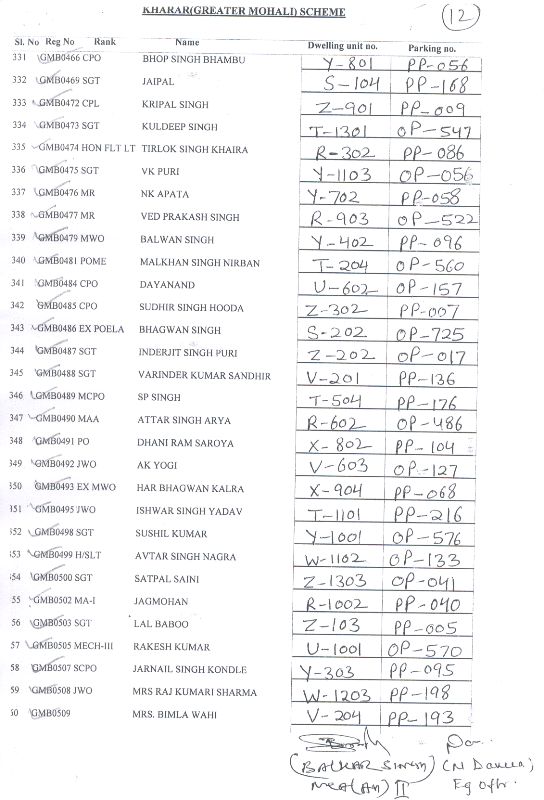 KHARAR(GREATER MOHALI) SCHEME
12
Sl. No Reg No Rank Name Dwelling unit no. Parking no.
331 GMB0466 CPO BHOP SINGH BHAMBU Y-801 PP-056
332 GMB0469 SGT JAIPAL S-104 PP-168
333 GMB0472 CPL KRIPAL SINGH Z-901 PP-009
334 GMB0473 SGT KULDEEP SINGH T-1301 OP-547
335 GMB0474 HON FLT LT TIRLOK SINGH KHAIRA R-302 PP-086
336 GMB0475 SGT VK PURI Y-1103 OP-056
337 GMB0476 MR NK APATA Y-702 PP-058
338 GMB0477 MR VED PRAKASH SINGH R-903 OP-522
339 GMB0479 MWO BALWAN SINGH Y-402 PP-096
340 GMB0481 POME MALKHAN SINGH NIRBAN T-204 OP-560
341 GMB0484 CPO DAYANAND U-602 OP-157
342 GMB0485 CPO SUDHIR SINGH HOODA Z-302 PP-007
343 GMB0486 EX POELA BHAGWAN SINGH S-202 OP-725
344 GMB0487 SGT INDERJIT SINGH PURI Z-202 OP-017
345 GMB0488 SGT VARINDER KUMAR SANDHIR V-201 PP-136
346 GMB0489 MCPO SP SINGH T-504 PP-176
347 GMB0490 MAA ATTAR SINGH ARYA R-602 OP-486
348 GMB0491 PO DHANI RAM SAROYA X-802 PP-104
349 GMB0492 JWO AK YOGI V-603 OP-127
350 GMB0493 EX MWO HAR BHAGWAN KALRA X-904 PP-068
351 GMB0495 JWO ISHWAR SINGH YADAV T-1101 PP-216
352 GMB0498 SGT SUSHIL KUMAR Y-1001 OP-576
353 GMB0499 H/SLT AVTAR SINGH NAGRA W-1102 OP-133
354 GMB0500 SGT SATPAL SAINI Z-1303 OP-041
55 GMB0502 MA-I JAGMOHAN R-1002 PP-040
56 GMB0503 SGT LAL BABOO Z-103 PP-005
57 GMB0505 MECH-III RAKESH KUMAR U-1001 OP-570
58 GMB0507 SCPO JARNAIL SINGH KONDLE Y-303 PP-095
59 GMB0508 JWO MRS RAJ KUMARI SHARMA W-1203 PP-198
50 GMB0509 MRS. BIMLA WAHI V-204 PP-193
(BALKAR SINGH)
II